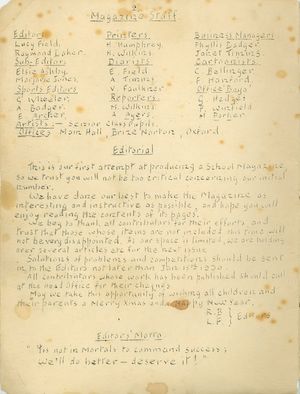 2
Magazine Staff
Editors Printers Business Managers
Lucy Field. H. Humphrey. Phyllis Badger
Raymond Baker. H. Wilkins. Janet Timms
Sub-Editors Diarists Cartoonists
Elsie Ashby. E. Field C. Ballinger
Marjorie Jones. A. Timms E. Hanford
Sports Editors V. Faulkner Office Boys
G. Wheeler. Reporters. G. Hedges
A. Badger. M. Wilkins. S. Winfield
E. Archer. J. Ayers. M. Porter
Artists — Senior Class Pupils
Offices Main Hall Brize Norton, Oxford
Editorial
This is our first attempt at producing a School Magazine
so we trust you will not be too critical concerning our initial
number.
We have done our best to make the Magazine as
interesting and instructive as possible, and hope you will
enjoy reading the contents of its pages.
We beg to thank all contributors for their efforts and
trust that those whose items are not included this time will
not be very disappointed. As our space is limited, we are holding
over several articles for the next issue.
Solutions of problems and competitions should be sent
in to the Editors not later than Jan 15th
All contributors whose work has been published should call
at the Head Office for their cheques.
May we take this opportunity of wishing all children and
their parents a Merry Xmas and Happy New Year.
R.B } Editors
L.F
Editors' Motto
"'Tis not in Mortals to command success;
We'll do better — deserve it!"